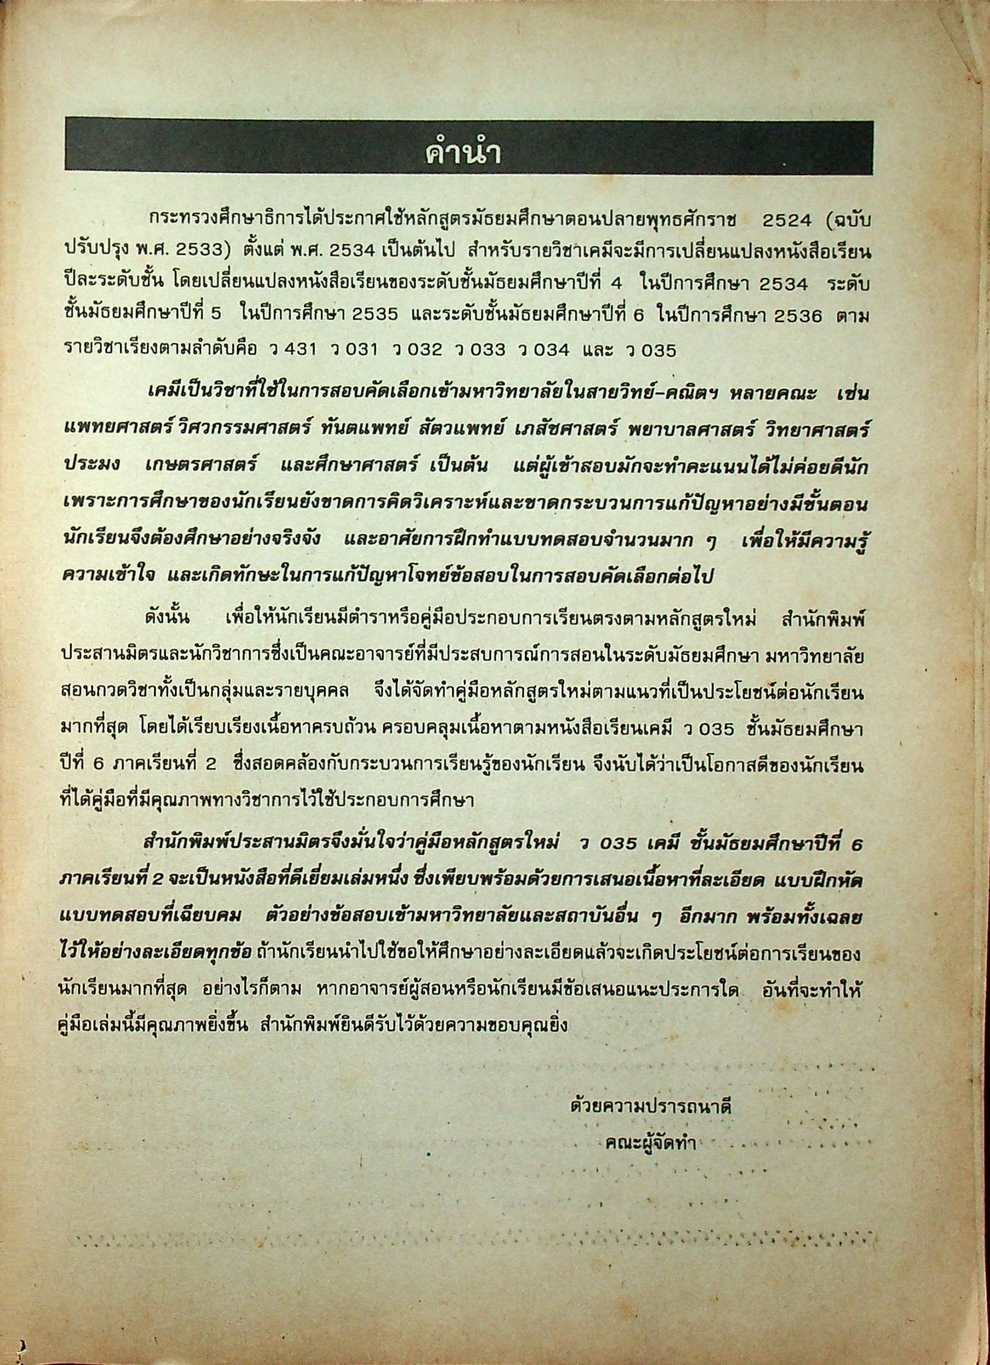 คำนำ
กระทรวงศึกษาธิการได้ประกาศใช้หลักสูตรมัธยมศึกษาตอนปลายพุทธศักราช 2524 (ฉบับ
ปรับปรุง พ.ศ. 2533) ตั้งแต่ พ.ศ. 2534 เป็นต้นไป สำหรับรายวิชาเคมีจะมีการเปลี่ยนแปลงหนังสือเรียน
ปีละระดับชั้น โดยเปลี่ยนแปลงหนังสือเรียนของระดับชั้นมัธยมศึกษาปีที่ 4 ในปีการศึกษา 2534 ระดับ
ชั้นมัธยมศึกษาปีที่ 5 ในปีการศึกษา 2535 และระดับชั้นมัธยมศึกษาปีที่ 6 ในปีการศึกษา 2536 ตาม
รายวิชาเรียงตามลำดับคือ ว 431 ว 031 ว 032 ว 033 ว 034 และ ว 035
เคมีเป็นวิชาที่ใช้ในการสอบคัดเลือกเข้ามหาวิทยาลัยในสายวิทย์-คณิตฯ หลายคณะ เช่น
แพทยศาสตร์ วิศวกรรมศาสตร์ ทันตแพทย์ สัตวแพทย์ เภสัชศาสตร์ พยาบาลศาสตร์ วิทยาศาสตร์
ประมง เกษตรศาสตร์ และศึกษาศาสตร์ เป็นต้น แต่ผู้เข้าสอบมักจะทำคะแนนได้ไม่ค่อยดีนัก
เพราะการศึกษาของนักเรียนยังขาดการคิดวิเคราะห์และขาดกระบวนการแก้ปัญหาอย่างมีขั้นตอน
นักเรียนจึงต้องศึกษาอย่างจริงจัง และอาศัยการฝึกทำแบบทดสอบจำนวนมาก ๆ เพื่อให้มีความรู้
ความเข้าใจ และเกิดทักษะในการแก้ปัญหาโจทย์ข้อสอบในการสอบคัดเลือกต่อไป
ดังนั้น เพื่อให้นักเรียนมีตำราหรือคู่มือประกอบการเรียนตรงตามหลักสูตรใหม่ สำนักพิมพ์
ประสานมิตรและนักวิชาการซึ่งเป็นคณะอาจารย์ที่มีประสบการณ์การสอนในระดับมัธยมศึกษา มหาวิทยาลัย
สอนกวดวิชาทั้งเป็นกลุ่มและรายบุคคล จึงได้จัดทำคู่มือหลักสูตรใหม่ตามแนวที่เป็นประโยชน์ต่อนักเรียน
มากที่สุด โดยได้เรียบเรียงเนื้อหาครบถ้วน ครอบคลุมเนื้อหาตามหนังสือเรียนเคมี ว 035 ชั้นมัธยมศึกษา
ปีที่ 6 ภาคเรียนที่ 2 ซึ่งสอดคล้องกับกระบวนการเรียนรู้ของนักเรียน จึงนับได้ว่าเป็นโอกาสดีของนักเรียน
ที่ได้คู่มือที่มีคุณภาพทางวิชาการไว้ใช้ประกอบการศึกษา
สำนักพิมพ์ประสานมิตรจึงมั่นใจว่าคู่มือหลักสูตรใหม่ ว 035 เคมี ชั้นมัธยมศึกษาปีที่ 6
ภาคเรียนที่ 2 จะเป็นหนังสือที่ดีเยี่ยมเล่มหนึ่ง ซึ่งเพียบพร้อมด้วยการเสนอเนื้อหาที่ละเอียด แบบฝึกหัด
แบบทดสอบที่เฉียบคม ตัวอย่างข้อสอบเข้ามหาวิทยาลัยและสถาบันอื่น ๆ อีกมาก พร้อมทั้งเฉลย
ไว้ให้อย่างละเอียดทุกข้อ ถ้านักเรียนนำไปใช้ขอให้ศึกษาอย่างละเอียดแล้วจะเกิดประโยชน์ต่อการเรียนของ
นักเรียนมากที่สุด อย่างไรก็ตาม หากอาจารย์ผู้สอนหรือนักเรียนมีข้อเสนอแนะประการใด อันที่จะทำให้
คู่มือเล่มนี้มีคุณภาพยิ่งขึ้น สำนักพิมพ์ยินดีรับไว้ด้วยความขอบคุณยิ่ง
ด้วยความปรารถนาดี
คณะผู้จัดทำ